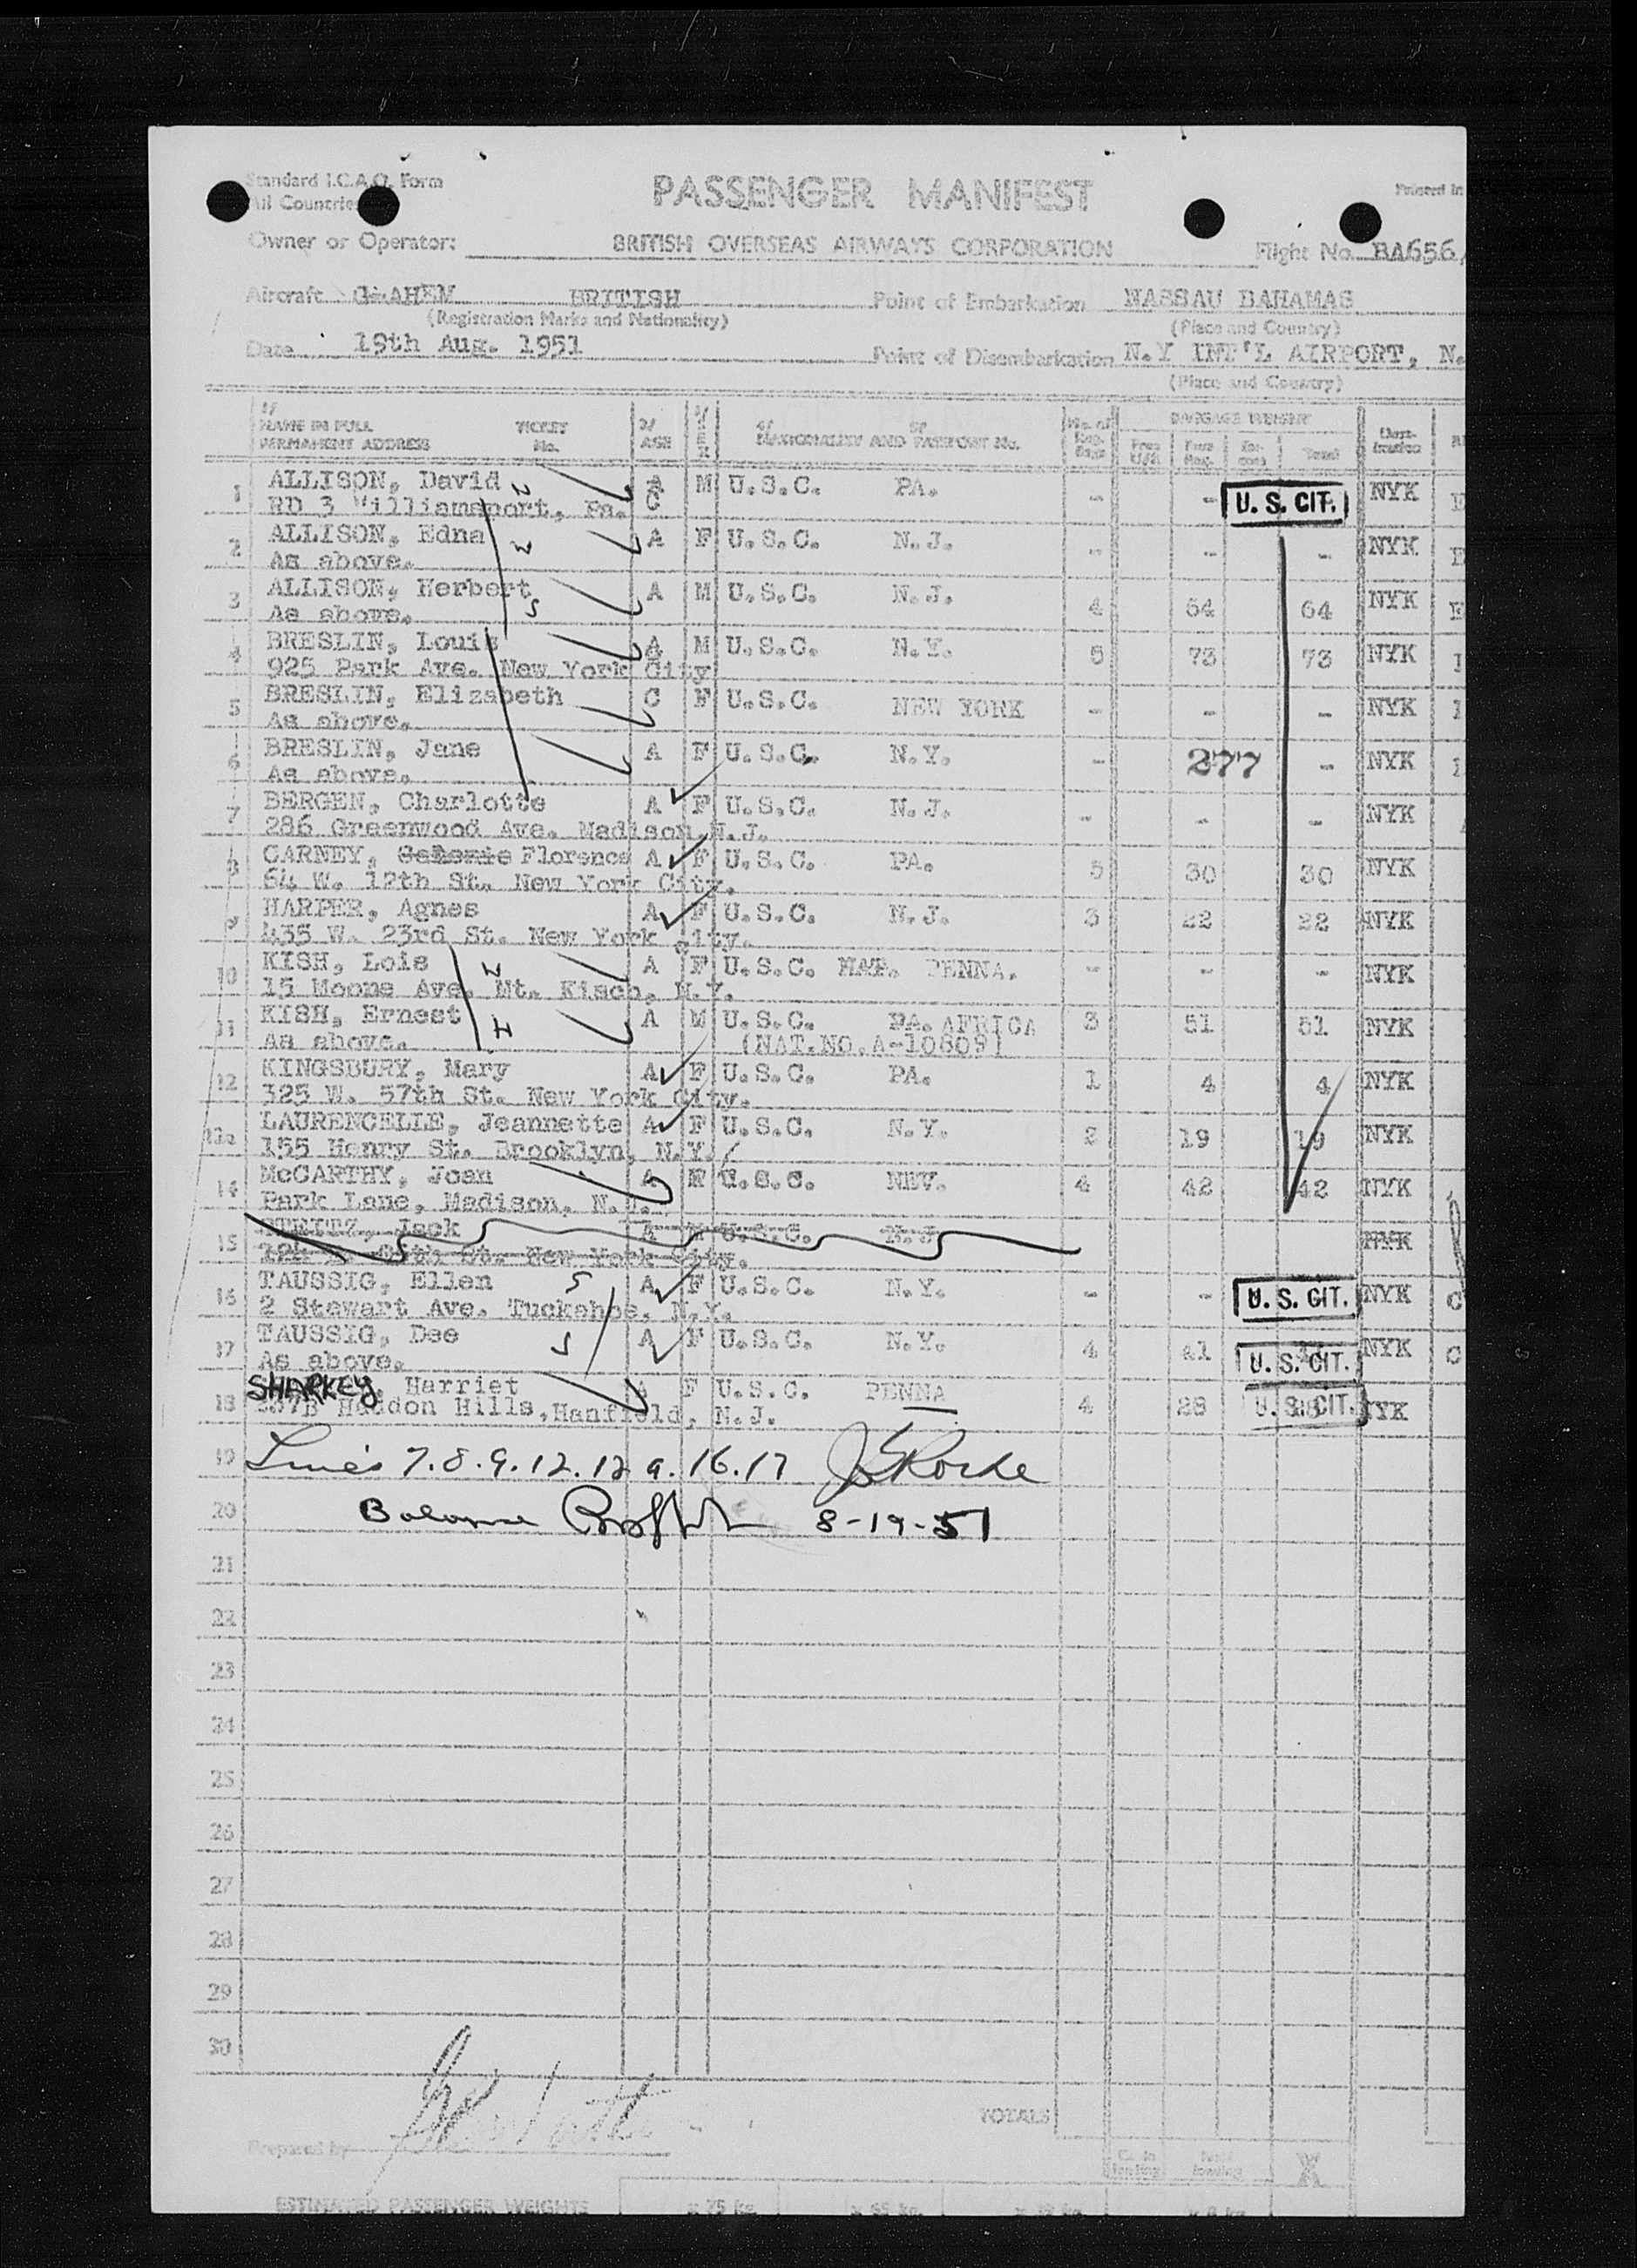 Standard I.C.A.O. Form
All Countries
PASSENGER MANIFEST
Printed in
Owner or Operator: BRITISH OVERSEAS AIRWAYS CORPORATION Flight No. BA656/
Aircraft G-AHEM BRITISH Point of Embarkation NASSAU BAHAMAS
(Registration Marks and Nationality) (Place and Country)
Date 19th Aug. 1951 Point of Disembarkation N.Y INT'L AIRPORT, N.
(Place and Country)
1/ NAME IN FULL PERMANENT ADDRESS TICKET No. 2/ AGE 3/ SEX 4/ 5/ NATIONALITY AND PASSPORT No. No. of BAGGAGE WEIGHT Total Dest-ination
1 ALLISON, David A M U.S.C. PA. - - U. S. CIT. NYK
RD 3 Williamsport, Pa. C
2 ALLISON, Edna A F U.S.C. N.J. - - - NYK
As above.
3 ALLISON, Herbert A M U.S.C. N.J. 4 64 64 NYK
As above.
4 BRESLIN, Louis A M U.S.C. N.Y. 5 73 73 NYK
925 Park Ave. New York City
5 BRESLIN, Elizabeth C F U.S.C. NEW YORK - - - NYK
As above.
6 BRESLIN, Jane A F U.S.C. N.Y. - 277 - NYK
As above.
7 BERGEN, Charlotte A F U.S.C. N.J. - - - NYK
286 Greenwood Ave. Madison, N.J.
8 CARNEY, Florence A F U.S.C. PA. 5 30 30 NYK
64 W. 12th St. New York City.
9 HARPER, Agnes A F U.S.C. N.J. 3 22 22 NYK
435 W. 23rd St. New York City.
10 KISH, Lois A F U.S.C. PENNA. - - - NYK
15 Moone Ave. Mt. Kisco, N.Y.
11 KISH, Ernest A M U.S.C. PA. AFRICA 3 51 51 NYK
As above. (NAT.NO.A-10809)
12 KINGSBURY, Mary A F U.S.C. PA. 1 4 4 NYK
325 W. 57th St. New York City.
12a LAURENCELLE, Jeannette A F U.S.C. N.Y. 2 19 19 NYK
155 Henry St. Brooklyn, N.Y.
14 McCARTHY, Joan A F U.S.C. NEV. 4 42 42 NYK
Park Lane, Madison, N.J.
15 Jack A M U.S.C. N.J NYK
St. New York City.
16 TAUSSIG, Ellen S A F U.S.C. N.Y. - - U. S. CIT. NYK C
2 Stewart Ave. Tuckahoe, N.Y.
17 TAUSSIG, Dee S A F U.S.C. N.Y. 4 41 U. S. CIT. NYK C
As above.
18 SHARKEY, Harriet A F U.S.C. PENNA 4 28 U. S. CIT. NYK
Haddon Hills, Hanfield, N.J.
19 Lines 7.8.9.12.12a.16.17
20 Balance 8-19-51
21
22
23
24
25
26
27
28
29
30
TOTALS
Prepared by
X
ESTIMATED PASSENGER WEIGHTS x 75 kg. x 65 kg. x 8 kg.